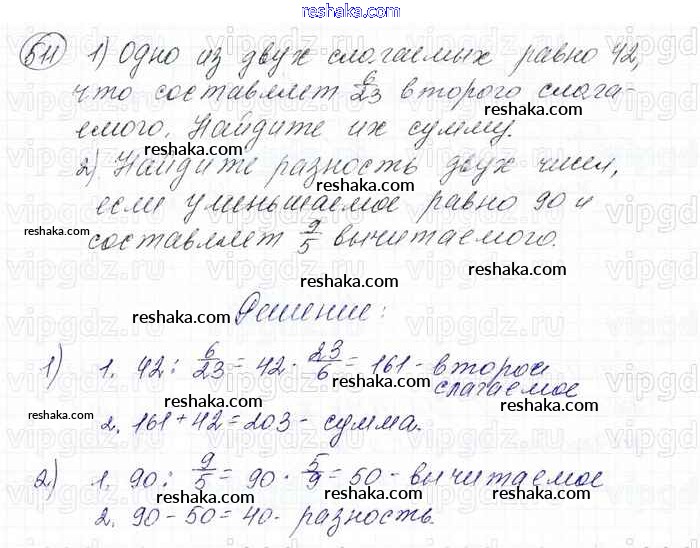 reshaka.com
511 1) Одно из двух слагаемых равно 42,
что составляет 6/23 второго слага-
reshaka.com
емого. Найдите их сумму.
reshaka.com
2) Найдите разность двух чисел,
reshaka.com
если уменьшаемое равно 90 и
reshaka.com
составляет 9/5 вычитаемого.
reshaka.com
reshaka.com reshaka.com
Решение:
reshaka.com
1) 1. 42 : 6/23 = 42 · 23/6 = 161 - второе
слагаемое
reshaka.com reshaka.com
reshaka.com
2. 161 + 42 = 203 - сумма.
reshaka.com
2) 1. 90 : 9/5 = 90 · 5/9 = 50 - вычитаемое
reshaka.com reshaka.com
2. 90 - 50 = 40 - разность.
reshaka.com